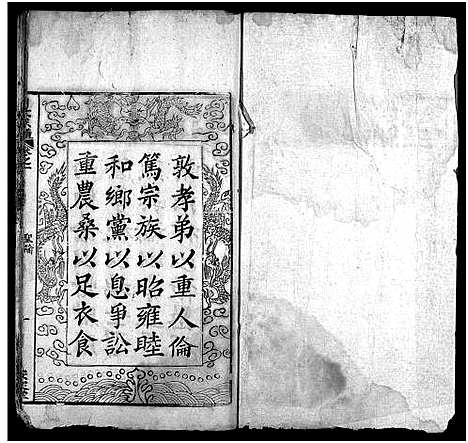 敦孝弟以重人倫
篤宗族以昭雍睦
和鄉黨以息爭訟
重農桑以足衣食
聖諭
一